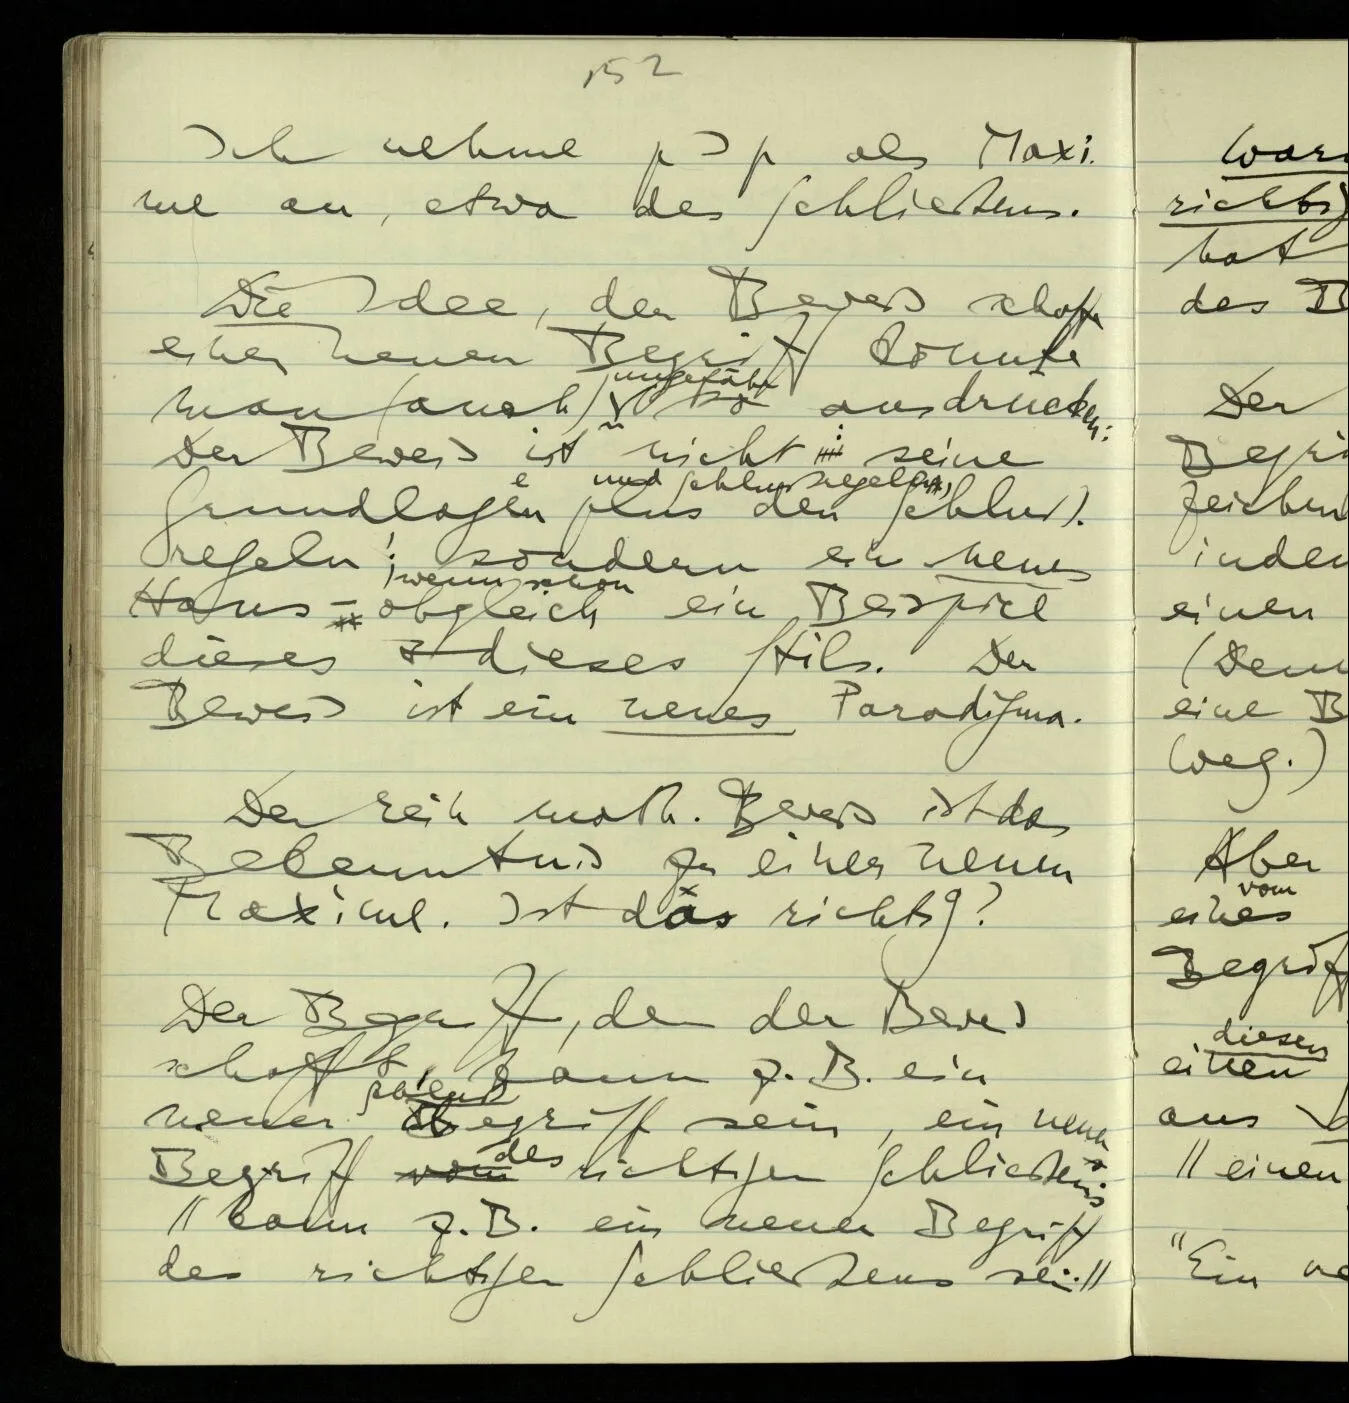 152
Ich nehme p⊃p als Maxi-
me an, etwa des Schließens.
Die Idee, der Beweis schaffe
einen neuen Begriff könnte
ungefähr
man (auch) so ausdrücken:
Der Beweis ist nicht seine
und Schlußregeln,
Grundlagen plus den Schluß-
regeln; sondern ein neues
wenn schon
Haus – obgleich ein Beispiel
dieses dieses Stils. Der
Beweis ist ein neues Paradigma.
Der rein math. Beweis ist das
Bekenntnis zu einer neuen
Maxime. Ist das richtig?
Der Begriff, den der Beweis
schafft, kann z.B. ein
neuer Begriff sein, ein neuer
des
Begriff vom richtigen Schließens
// kann z.B. ein neuer Begriff
des richtigen Schließens sein. //
hat
des B
Der
einen
eine B
weg.)
Aber
vom
eines
Begriff
diesen
einen
aus
// einen
"Ein